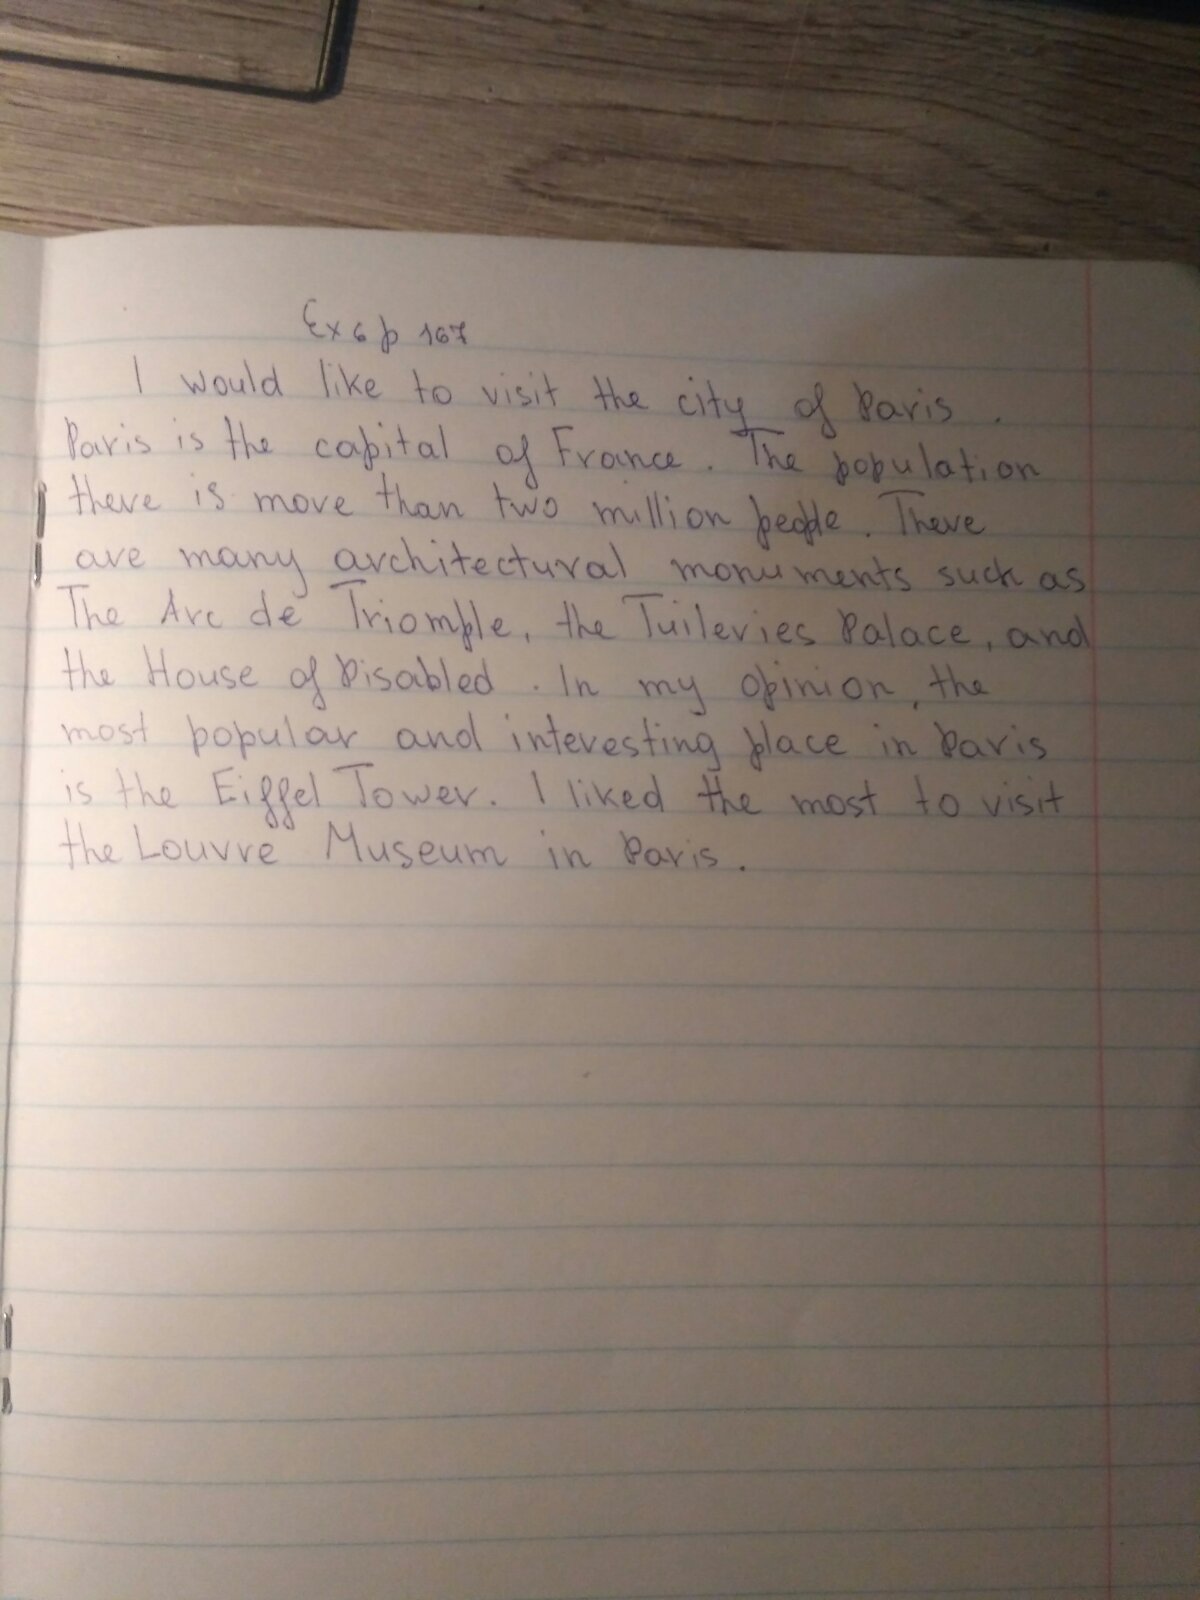 Ex 6 p 167
I would like to visit the city of Paris.
Paris is the capital of France. The population
there is more than two million people. There
are many architectural monuments such as
The Arc de Triomple, the Tuileries Palace, and
the House of Disabled. In my opinion, the
most popular and interesting place in Paris
is the Eiffel Tower. I liked the most to visit
the Louvre Museum in Paris.